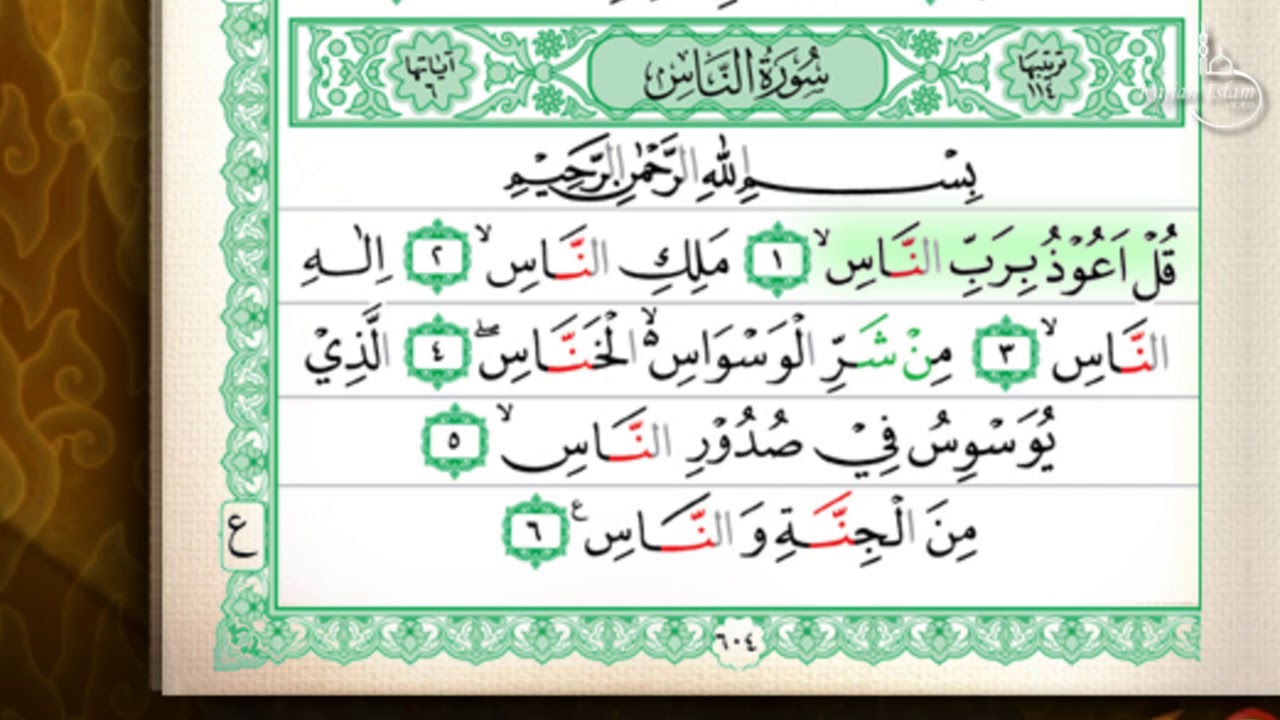 ترتيبها ١١٤ سُورَةُ النَّاسِ آياتها ٦
بِسْمِ اللهِ الرَّحْمٰنِ الرَّحِيْمِ
قُلْ اَعُوْذُ بِرَبِّ النَّاسِ ۙ ١ مَلِكِ النَّاسِ ۙ ٢ اِلٰهِ
النَّاسِ ۙ ٣ مِنْ شَرِّ الْوَسْوَاسِ ۙ الْخَنَّاسِ ۖ ٤ الَّذِيْ
يُوَسْوِسُ فِيْ صُدُوْرِ النَّاسِ ۙ ٥
مِنَ الْجِنَّةِ وَ النَّاسِ ع ٦
ع
٦٠٤